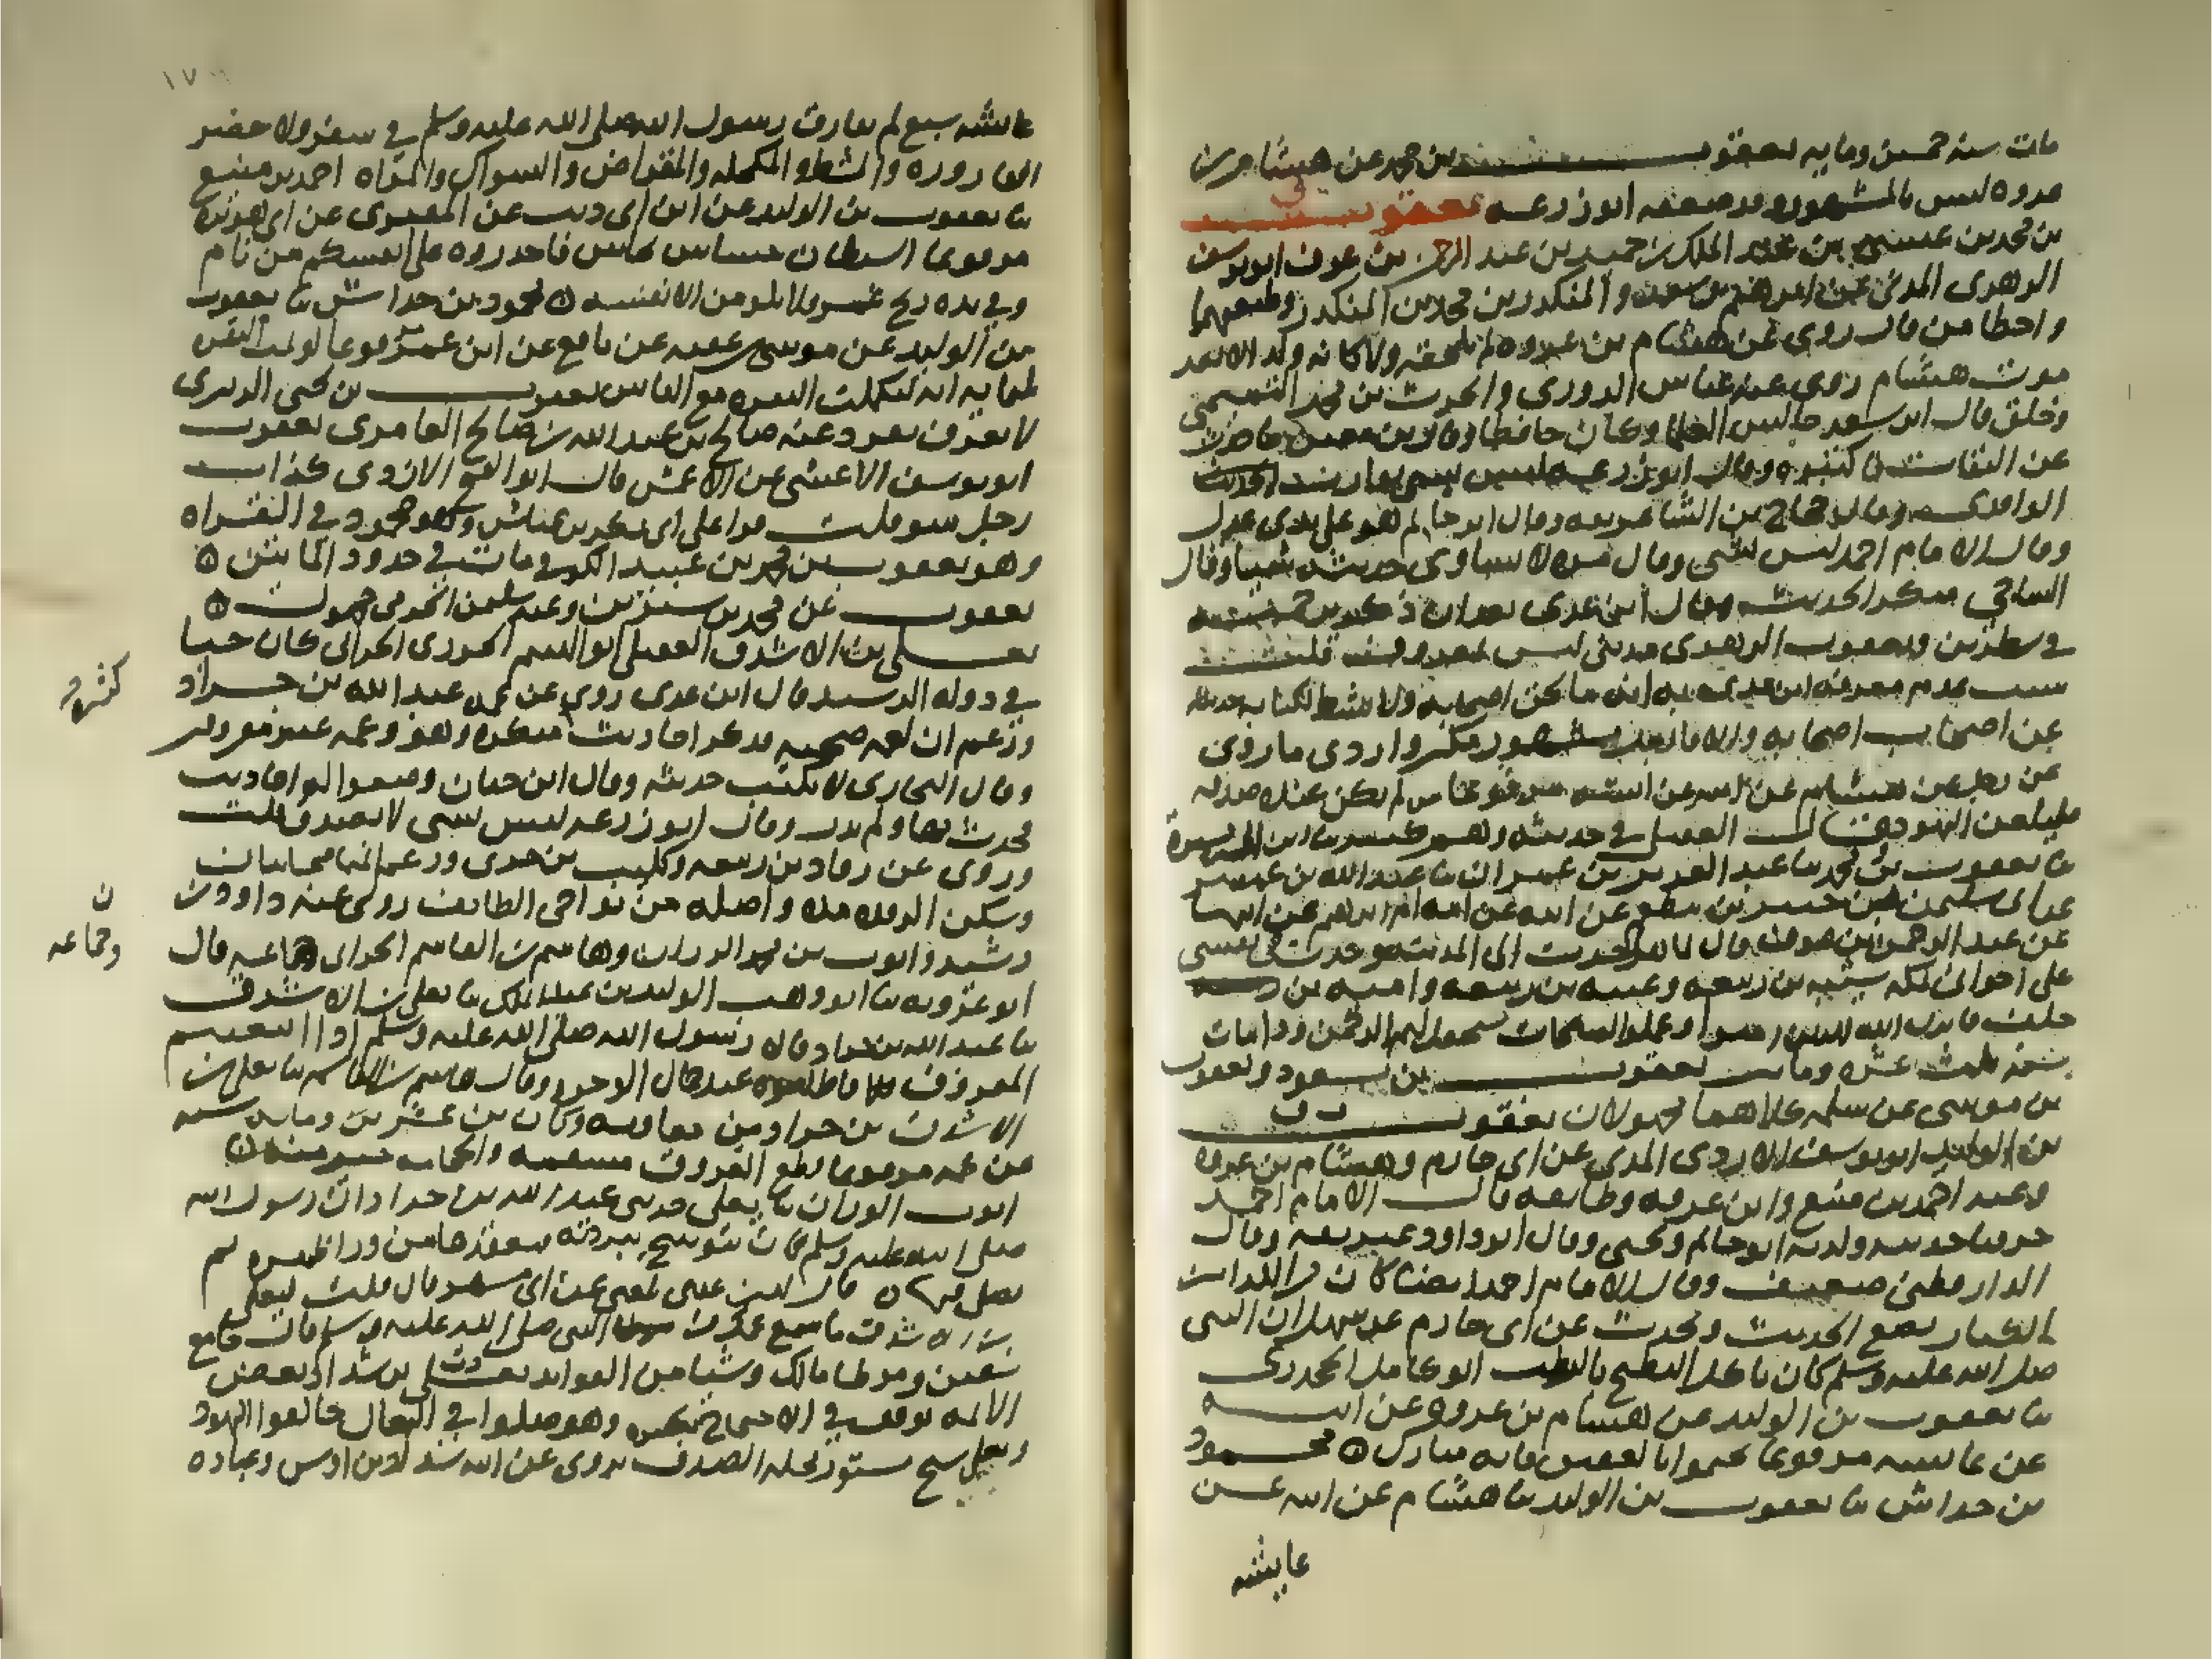 مات سنة خمسين ومايه يعقوب بن محمد عن هشام بن
عروه ليس بالمشهور وقد ضعفه ابو زرعه يعقوب
بن محمد بن عيسى بن عبد الملك بن حميد بن عبد الرحمن بن عوف ابو يوسف
الزهرى المدنى عن ابرهيم بن سعد والمنكدر بن محمد بن المنكدر وطبقتهما
واخطا من قال روى عن هشام بن عروه لم يلحقه ولا كانه ولد الا بعد
موت هشام روى عنه عباس الدورى والحرث بن محمد التميمى
وخلق قال ابن سعد جالس العلما وكان حافظا وقال بن معين ما حدث
عن الثقات فاكتبوه وقال ابو زرعه ليس بشى يقارب الحديث
الواقدى وقال حجاج بن الشاعر ثقه وقال ابو حاتم هو على يدى عدل
وقال الامام احمد ليس بشى وقال مره لا يساوى حديثه شيا وقال
الساجى منكر الحديث وقال ابن عدى بعد ان ذكر
فى سطرين ويعقوب الزهرى مدنى ليس بمعروف قلت
سبب عدم معرفه ابن عدى به انه ما لحق اصحابه ولا نشط لكتابه حديثه
عن اصحاب اصحابه والا فالرجل مشهور مكثر واردى ما روى
عن رجل عن هشام عن ابيه عن عايشه مرفوعا من لم يكن عنده صدقه
فليلعن اليهود قال العقيلى فى حديثه وهم كثير ثنا ابن ابى مسرة
ثنا يعقوب بن محمد ثنا عبد العزيز بن عمران ثنا عبد الله بن
عن ابيه عن امه ام ابرهيم عن ابيها
عن عبد الرحمن بن عوف قال لما هاجرت الى المدينه حدث نفسى
على اخوانى بمكه شيبه بن ربيعه وعتبه بن ربيعه واميه بن خلف
فانزل الله ان الذين امنوا وعملوا الصالحات سيجعل لهم الرحمن ودا مات
سنة ثلث عشره ومايتين يعقوب بن مسعود ويعقوب
بن موسى عن سلمه كلاهما مجهولان يعقوب ت ق
بن الوليد ابو يوسف الازدى المدنى عن ابى حازم وهشام بن عروه
وعنه احمد بن منيع وابن عرفه وطايفه قال الامام احمد
خرقنا حديثه وكذبه ابو حاتم ويحيى وقال ابو داوود غير ثقه وقال
الدارقطنى ضعيف وقال الامام احمد ايضا كان من الكذابين
الكبار يضع الحديث ويحدث عن ابى حازم عن سهل ان النبى
صلى الله عليه وسلم كان ياكل البطيخ بالرطب ابو كامل الجحدرى
ثنا يعقوب بن الوليد عن هشام بن عروه عن ابيه
عن عايشه مرفوعا تختموا بالعقيق فانه مبارك محمود
بن خداش ثنا يعقوب بن الوليد ثنا هشام عن ابيه عن
عايشه
عايشه سبع لم يفارق رسول الله صلى الله عليه وسلم فى سفر ولا حضر
القاروره والمشط والمكحله والمقراض والسواك والمراه احمد بن منيع
ثنا يعقوب بن الوليد عن ابن ابى ذيب عن المقبرى عن ابى هريره
مرفوعا الشيطان حساس لحاس فاحذروه على انفسكم من نام
وفى يده ريح غمر فلا يلومن الا نفسه محمود بن خداش ثنا يعقوب
بن الوليد عن موسى بن عقبه عن نافع عن ابن عمر مرفوعا لو لمت البقره
لمايه انه لتكلمت البقره مع الناس يعقوب بن يحيى الزبيرى
لا يعرف تفرد عنه صالح بن عبد الله بن صالح العامرى يعقوب
ابو يوسف الاعشى عن الاعمش قال ابو الفتح الازدى كذاب
رجل سو قلت قرا على ابى بكر بن عياش وهو محمود فى القراه
وهو يعقوب بن محمد بن عبيد الكوفى مات فى حدود المايتين
يعقوب عن محمد بن سيرين وعنه سليمن التيمى مجهول
يعلى بن الاشدق العقيلى ابو الهيثم الجزرى الحرانى كان حيا
فى دوله الرشيد قال ابن عدى روى عن عمه عبد الله بن جراد
وزعم ان لعمه صحبه فذكر احاديث كثيره منكره وهو وعمه غير معروفين
وقال البخارى لا يكتب حديثه وقال ابن حبان وضعوا له احاديث
فحدث بها ولم يدر وقال ابو زرعه ليس بشى لا يصدق قلت
وروى عن رقاد بن ربيعه وكليب بن جرى وزعم انهما صحابيان
وسكن الرقه مده واصله من نواحى الطايف روى عنه داوود بن
رشيد وايوب بن محمد الوزان وهاشم بن القاسم الحرانى وجماعه قال
ابو عروبه ثنا ابو وهب الوليد بن عبد الملك ثنا يعلى بن الاشدق
ثنا عبد الله بن جراد قال رسول الله صلى الله عليه وسلم اذا ابتغيتم
المعروف فاطلبوه عند جمال الوجوه وقال هاشم بن القاسم ثنا يعلى بن
الاشدق بن جراد بن معاويه وكان بن عشرين ومايه سنه
عن عمه مرفوعا قطع العروق مسقمه والحجامه خير منه
ايوب الوزان ثنا يعلى حدثنى عبد الله بن جراد ان رسول الله
صلى الله عليه وسلم كان يتوشح ببردته فيعقدها من ورا ظهره ثم
يصلى فيها قال ابن عدى بلغنى عن ابى مسهر قال قلت ليعلى
بن الاشدق ما سمع عمك من النبى صلى الله عليه وسلم قال جامع
سفين وموطا مالك وشيا من الفوايد يعلى بن شداد بعض
الايمه توقف فى الاحتجاج بخبره وهو صلوا فى النعال خالفوا اليهود
ويعلى شيخ مستور محله الصدق يروى عن ابيه شداد بن اوس وعباده
كثيره
وجماعه